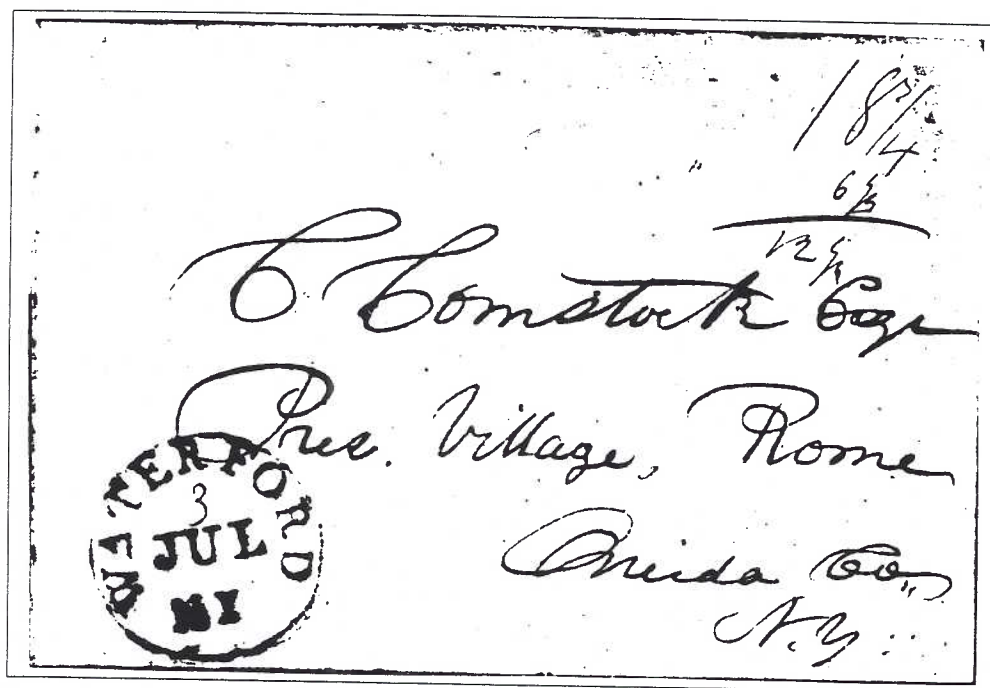 18 3/4
6
12
C Comstock Esqr
Pres. Village, Rome
Oneida Co,
N.Y.
WATERFORD
3
JUL